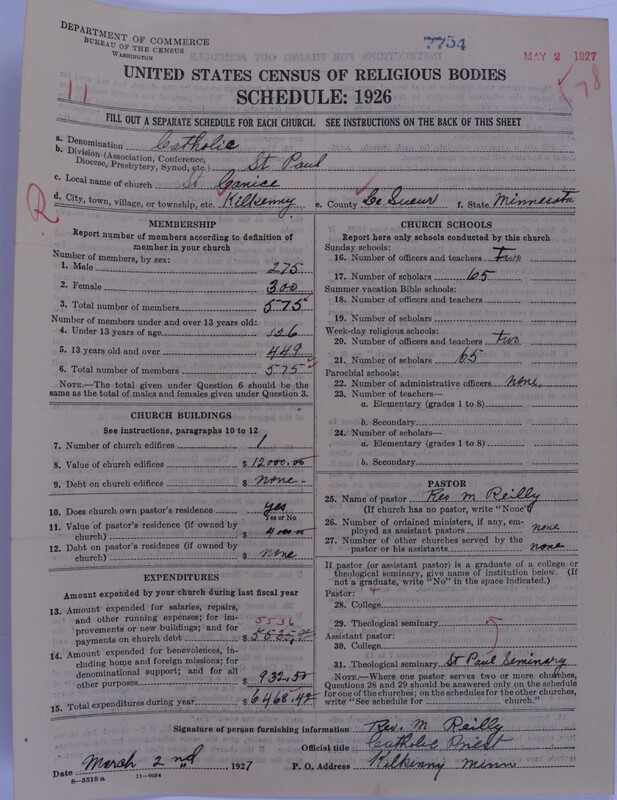 DEPARTMENT OF COMMERCE
BUREAU OF THE CENSUS
WASHINGTON
7754
MAY 2 1927
UNITED STATES CENSUS OF RELIGIOUS BODIES
SCHEDULE: 1926
11
FILL OUT A SEPARATE SCHEDULE FOR EACH CHURCH. SEE INSTRUCTIONS ON THE BACK OF THIS SHEET
a. Denomination Catholic
b. Division (Association, Conference, Diocese, Presbytery, Synod, etc.) St Paul
c. Local name of church St Canice
d. City, town, village, or township, etc. Kilkenny e. County Le Sueur f. State Minnesota
R
MEMBERSHIP
Report number of members according to definition of
member in your church
Number of members, by sex:
1. Male 275
2. Female 300
3. Total number of members 575
Number of members under and over 13 years old:
4. Under 13 years of age 126
5. 13 years old and over 449
6. Total number of members 575
NOTE.—The total given under Question 6 should be
same as the total of males and females given under Question 3.
CHURCH BUILDINGS
See instructions, paragraphs 10 to 12
7. Number of church edifices 1
8. Value of church edifices $ 12000.00
9. Debt on church edifices $ none
10. Does church own pastor's residence yes
Yes or No
11. Value of pastor's residence (if owned by
church) $
12. Debt on pastor's residence (if owned by
church) $ none
EXPENDITURES
Amount expended by your church during last fiscal year
13. Amount expended for salaries, repairs,
and other running expenses; for im-
provements or new buildings; and for
payments on church debt 5536 $
14. Amount expended for benevolences, in-
cluding home and foreign missions; for
denominational support; and for all
other purposes $ 932.50
15. Total expenditures during year $ 6468.42
CHURCH SCHOOLS
Report here only schools conducted by this church
Sunday schools:
16. Number of officers and teachers two
17. Number of scholars 65
Summer vacation Bible schools:
18. Number of officers and teachers
19. Number of scholars
Week-day religious schools:
20. Number of officers and teachers two
21. Number of scholars 65
Parochial schools:
22. Number of administrative officers none
23. Number of teachers—
a. Elementary (grades 1 to 8)
b. Secondary
24. Number of scholars—
a. Elementary (grades 1 to 8)
b. Secondary
PASTOR
25. Name of pastor Rev M Reilly
(If church has no pastor, write "None")
26. Number of ordained ministers, if any, em-
ployed as assistant pastors none
27. Number of other churches served by the
pastor or his assistants none
If pastor (or assistant pastor) is a graduate of a college or
theological seminary, give name of institution below. (If
not a graduate, write "No" in the space indicated.)
Pastor:
28. College
29. Theological seminary
Assistant pastor:
30. College
31. Theological seminary St Paul Seminary
NOTE.—Where one pastor serves two or more churches,
Questions 28 and 29 should be answered only on the schedule
for one of the churches; on the schedules for the other churches,
write "See schedule for church."
Signature of person furnishing information Rev. M Reilly
Official title Catholic Priest
Date March 2nd, 1927 P. O. Address Kilkenny Minn
8—5318 a 11—9064